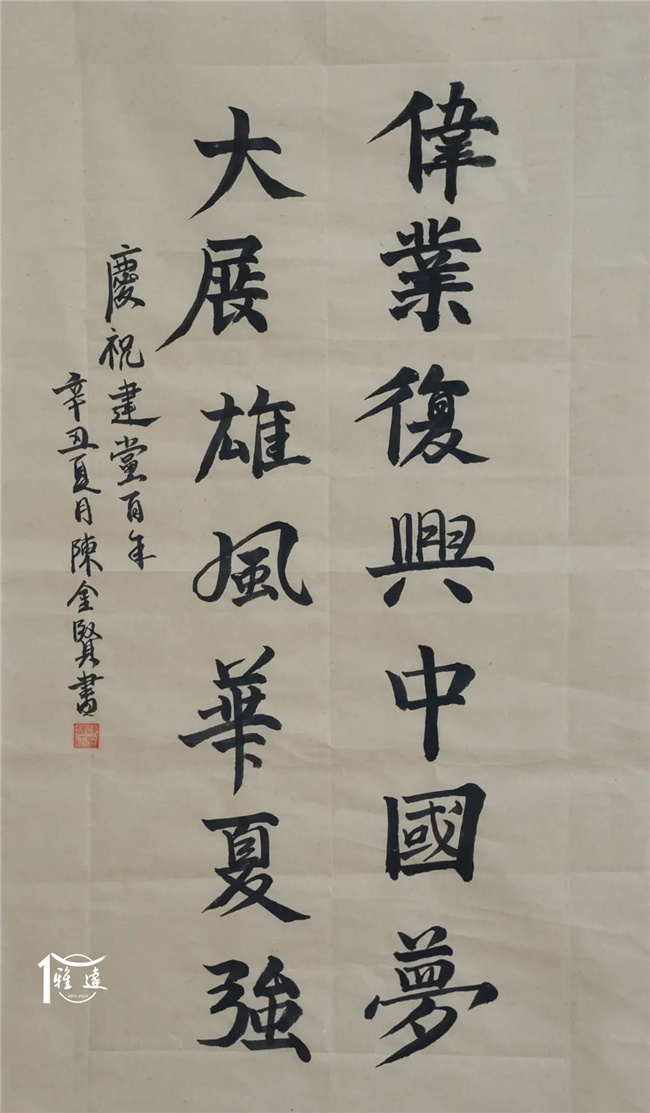 偉業復興中國夢
大展雄風華夏強
慶祝建黨百年
辛丑夏月陳金賢書
雅達